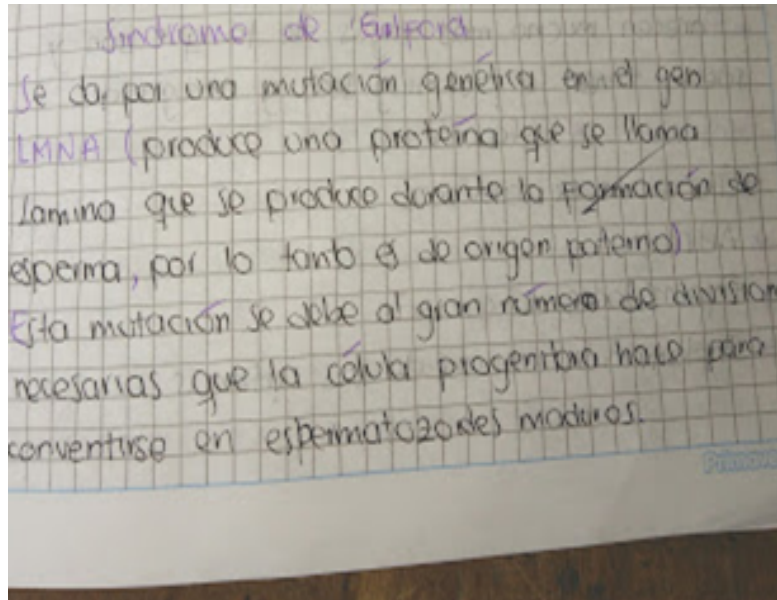 Síndrome de
Se da por una mutación genética en el gen
LMNA (produce una proteína que se llama
Lamina que se produce durante la formación de
esperma, por lo tanto es de origen paterno)
Esta mutación se debe al gran número de division
necesarias que la célula progenitora hace para
conventirse en espermatozoides maduros.